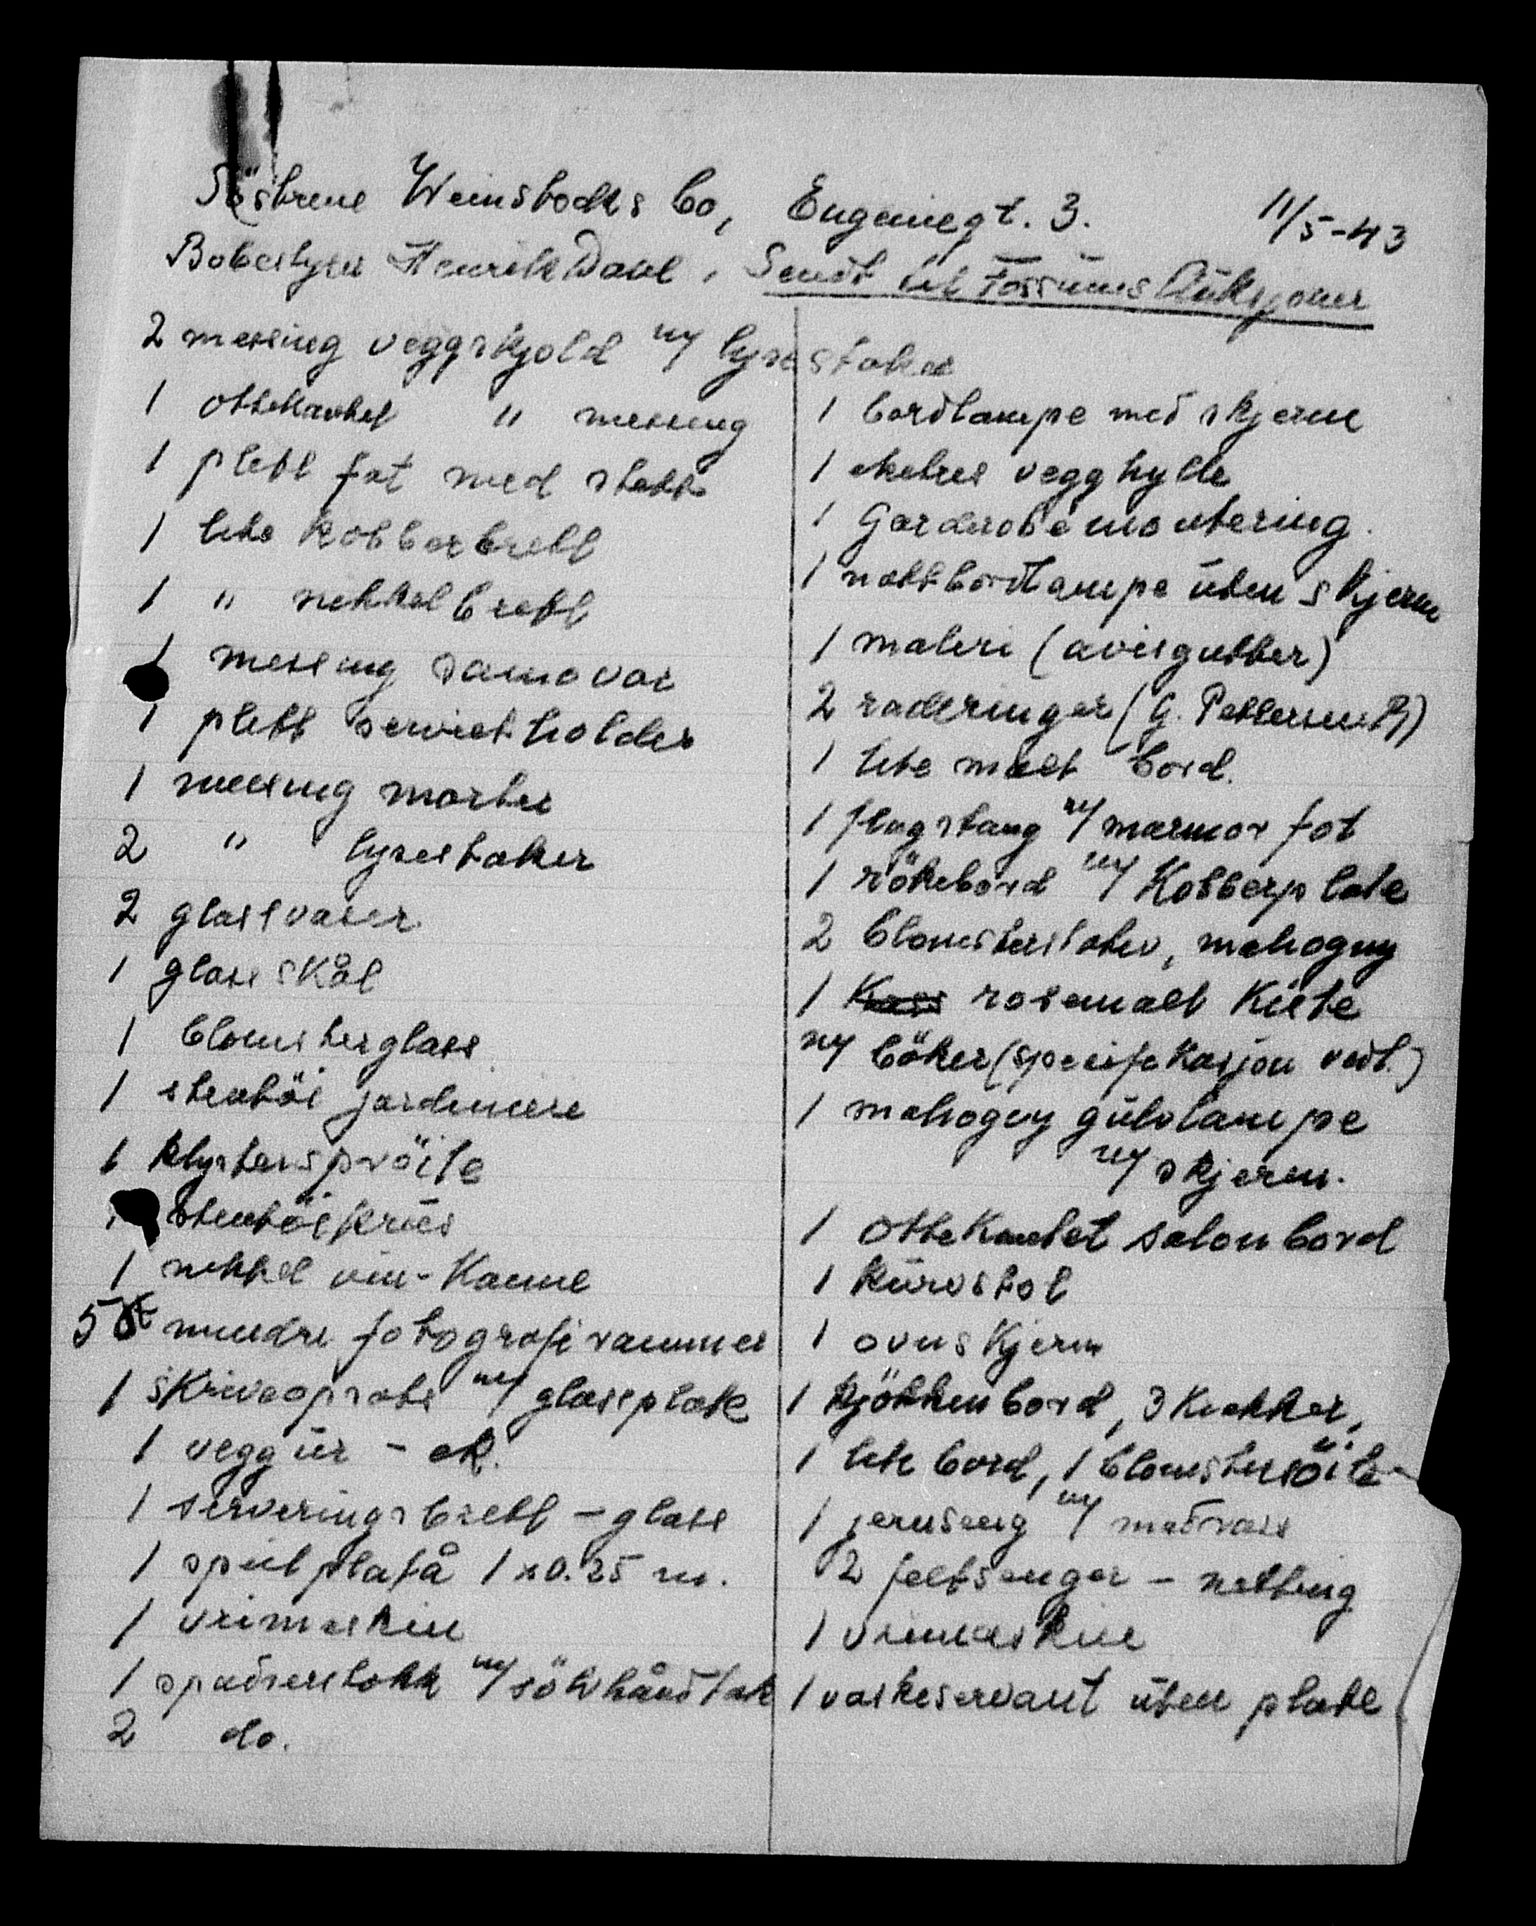 Söstrene Weinstocks bo, Eugeniegt. 3. 11/5-43
Bobestyrer Henrik Dahl, Sendt til Fossums Auksjoner
2 messing veggskjold m/ lysestaker
1 ottekantet " messing
1 plett fat med stett
1 lite kobberbrett
1 " nikkelbrett
1 messing samovar
1 plett serviettholder
1 messing morter
2 " lysestaker
2 glassvaser
1 glasskål
1 blomsterglass
1 stentöi jardiniere
1 klysterspröite
1 stentöikrus
1 nikkel vin-kanne
5 mindre fotografirammer
1 skriveoprats m/ glassplate
1 veggur - ek.
1 serveringsbrett - glass
1 speilplatå 1 x 0.25 m.
1 vrimaskin
1 spaserstokk m/ sölvhåndtak
2 do.
1 bordlampe med skjerm
1 eketres vegghylle
1 Garderobemontering.
1 nattbordlampe uten skjerm
1 maleri (avisgutter)
2 raderinger (G. Pettersen)
1 lite malt bord.
1 flagstang m/ marmor fot
1 rökebord m/ Kobberplate
2 blomsterstativ, mahogny
1 rosemalt Kiste
m/ böker (spesifikasjon vedl.)
1 mahogny gulvlampe
m/ skjerm.
1 ottekantet salonbord
1 kurvstol
1 ovnskjerm
1 kjökkenbord, 3 krakker,
1 lite bord, 1 blomstersöile
1 jernseng m/ madrass
2 feltsenger - netting
1 vrimaskin
1 vaskeservant uten plate